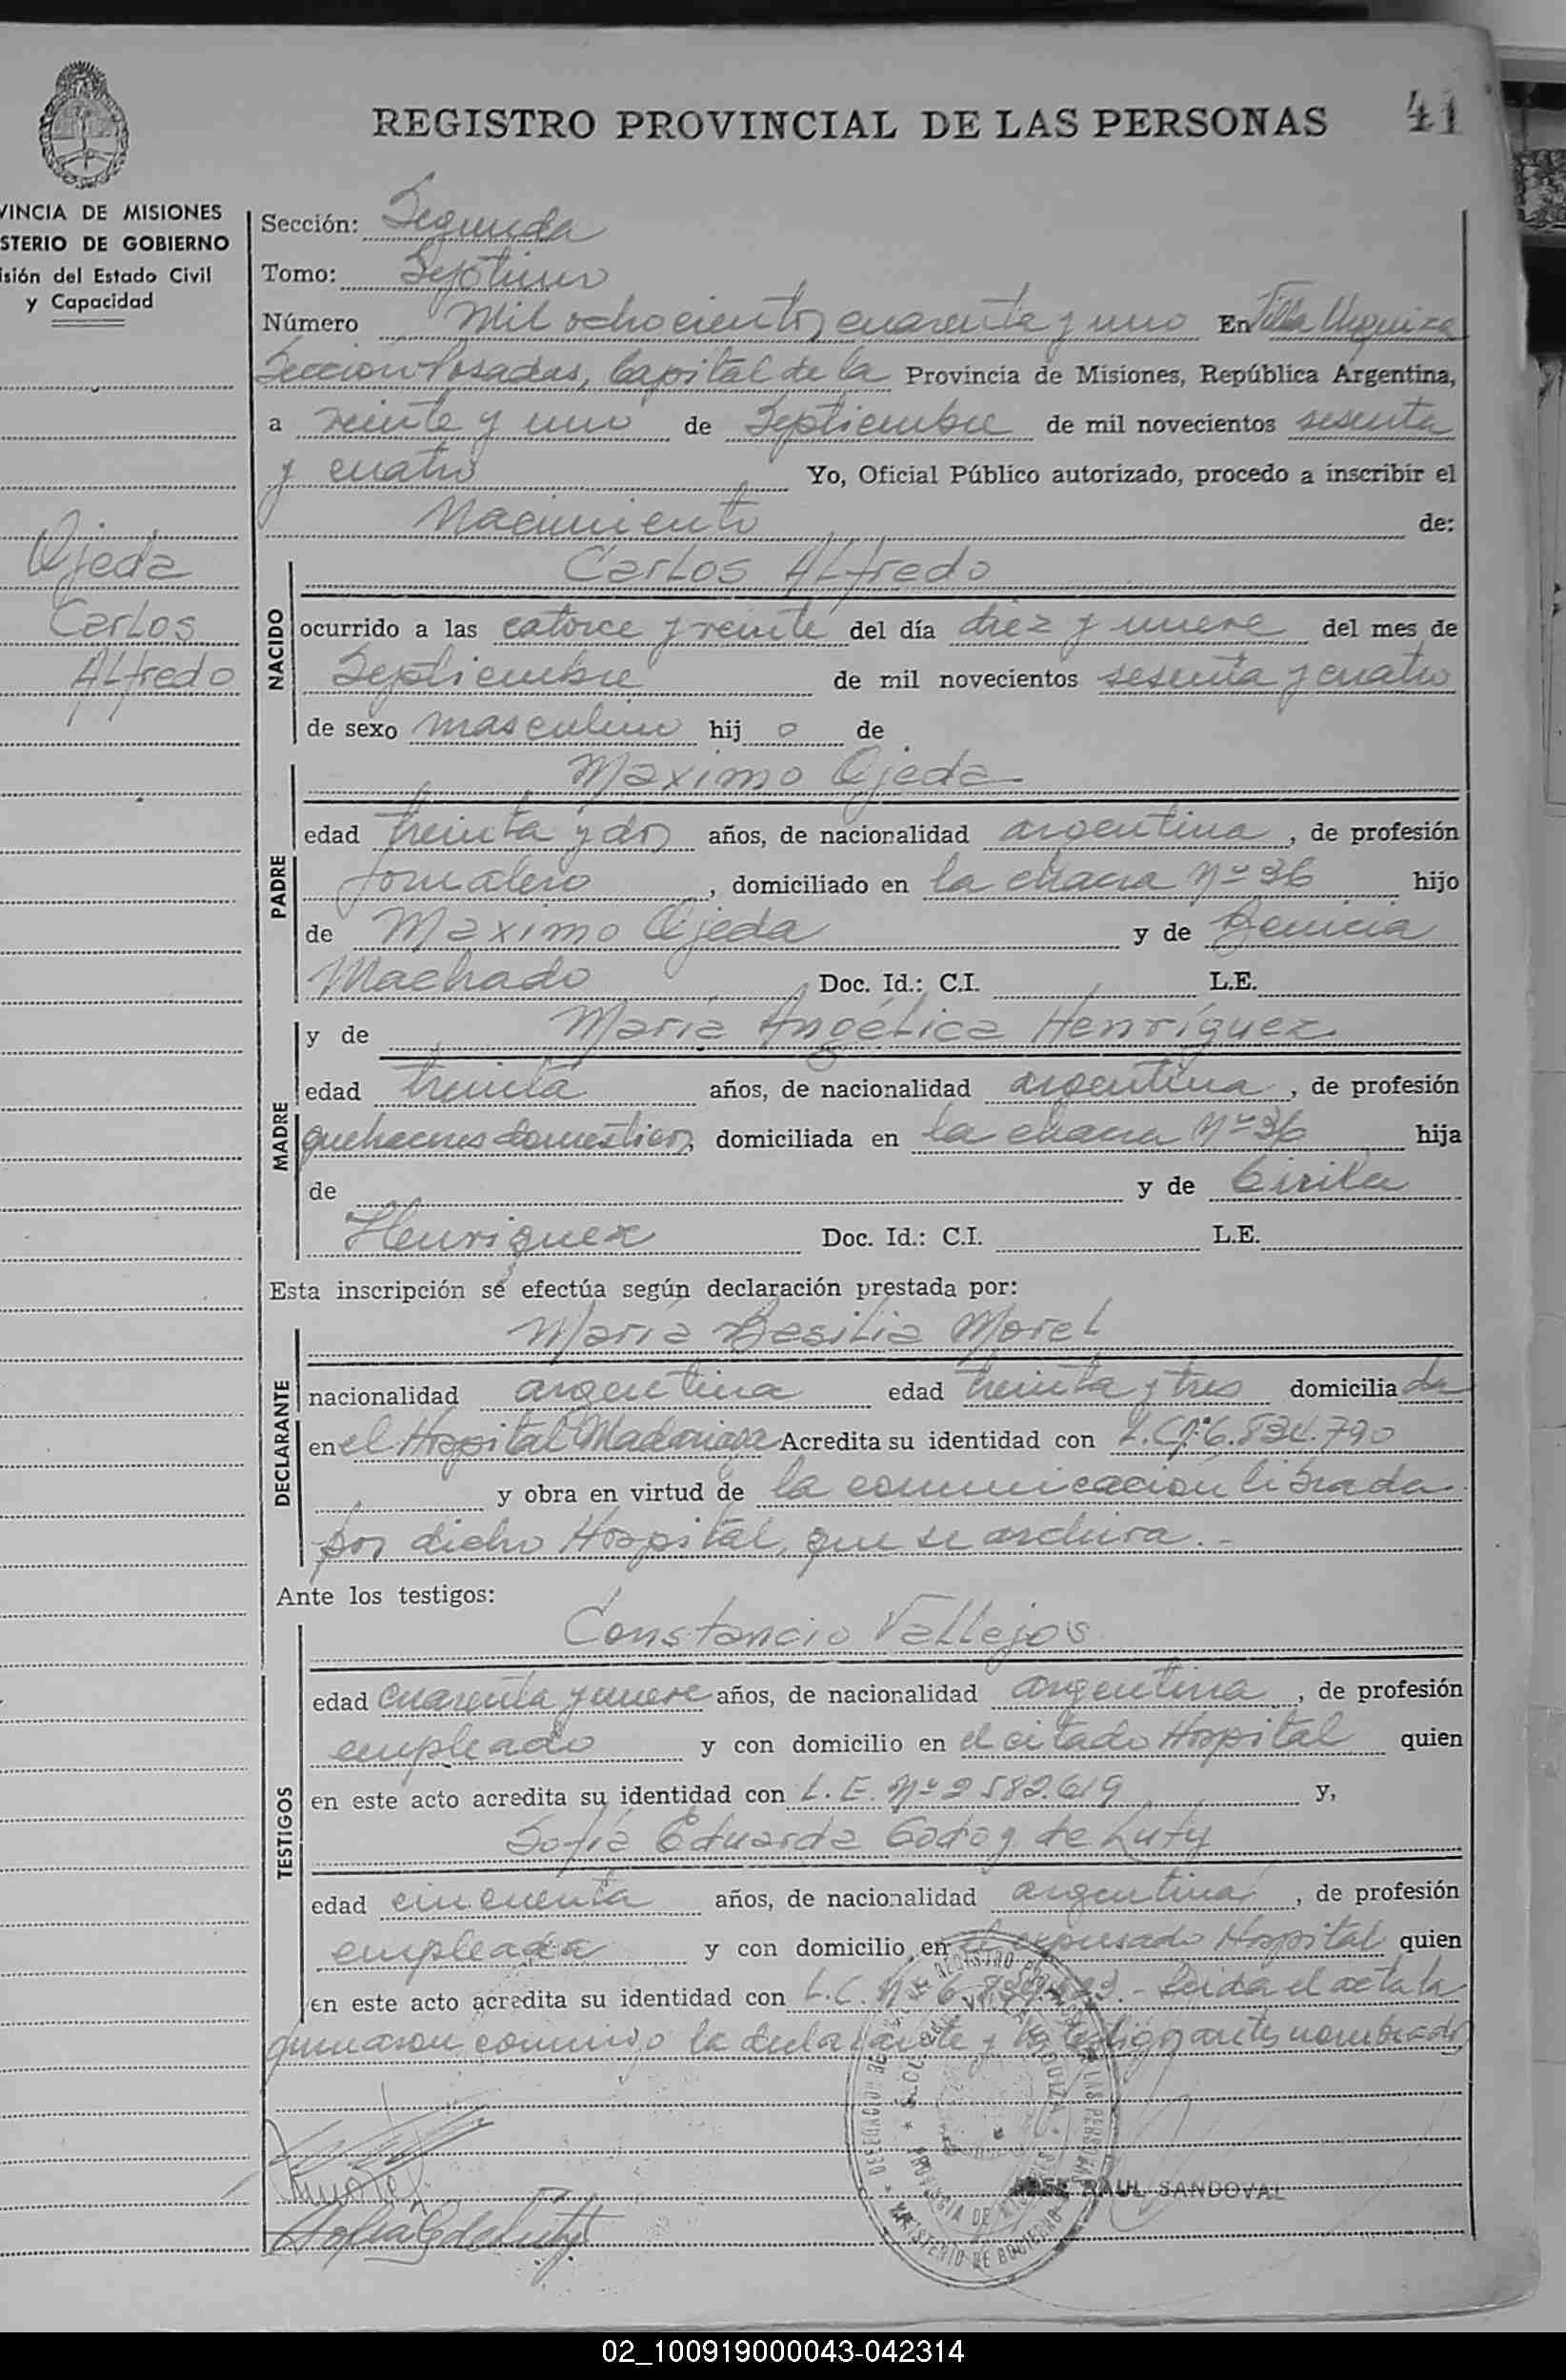 REGISTRO PROVINCIAL DE LAS PERSONAS 41
VINCIA DE MISIONES
STERIO DE GOBIERNO
isión del Estado Civil
y Capacidad
Sección: Segunda
Tomo: Septimo
Número Mil ochocientos cuarenta y uno En Villa Urquiza
Sección Posadas, Capital de la Provincia de Misiones, República Argentina,
a veinte y uno de Septiembre de mil novecientos sesenta
y cuatro Yo, Oficial Público autorizado, procedo a inscribir el
Nacimiento de:
Ojeda
Carlos
Alfredo
NACIDO
Carlos Alfredo
ocurrido a las catorce y veinte del día diez y nueve del mes de
Septiembre de mil novecientos sesenta y cuatro
de sexo masculino hij o de
PADRE
Maximo Ojeda
edad treinta y dos años, de nacionalidad argentina, de profesión
jornalero, domiciliado en la chacra Nº 36 hijo
de Maximo Ojeda y de
Machado Doc. Id.: C.I. L.E.
MADRE
y de María Angélica Henríquez
edad treinta años, de nacionalidad argentina, de profesión
quehaceres domesticos, domiciliada en la chacra Nº 36 hija
de y de Cirila
Henriquez Doc. Id.: C.I. L.E.
Esta inscripción se efectúa según declaración prestada por:
DECLARANTE
María Basilia Morel
nacionalidad argentina edad treinta y tres domicilia da
en el Hospital Madariaga Acredita su identidad con L.C.Nº 6.834.790
y obra en virtud de la comunicación librada
por dicho Hospital, que se archiva.-
Ante los testigos:
TESTIGOS
Constancio Vallejos
edad cuarenta y nueve años, de nacionalidad argentina, de profesión
empleado y con domicilio en el citado Hospital quien
en este acto acredita su identidad con L.E. Nº 2582.619 y,
Sofía Eduarda Godoy de Luty
edad cincuenta años, de nacionalidad argentina, de profesión
empleada y con domicilio en el expresado Hospital quien
en este acto acredita su identidad con L.C. Nº Leida el acta la
firmaron conmigo la declarante y los testigos antes nombrados
JOSE RAUL SANDOVAL
02_100919000043-042314